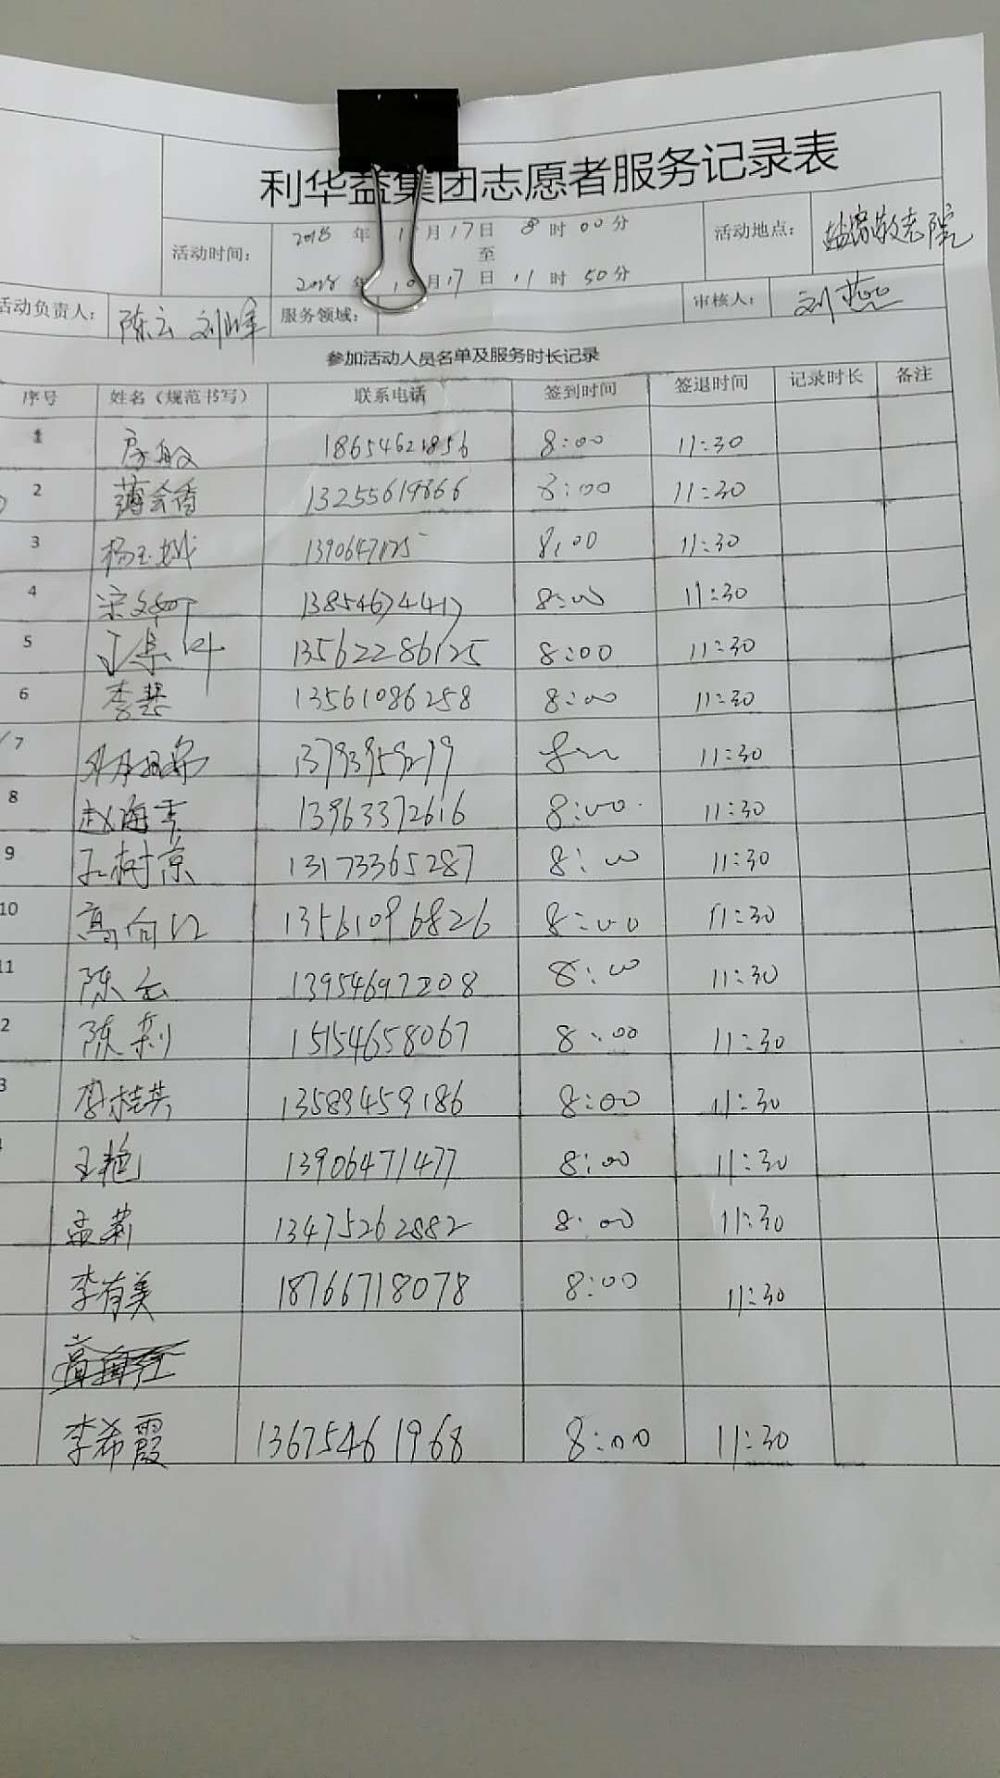 利华益集团志愿者服务记录表
活动时间： 2018 年 10 月 17 日 8 时 00 分 至 2018 年 10 月 17 日 11 时 50 分 活动地点： 敬老院
活动负责人： 陈云 刘峰 服务领域： 审核人： 刘燕
参加活动人员名单及服务时长记录
序号 姓名（规范书写） 联系电话 签到时间 签退时间 记录时长 备注
1 18654621856 8:00 11:30
2 薄会香 13255619866 8:00 11:30
3 杨玉城 8:00 11:30
4 宋文娜 13854674417 8:00 11:30
5 13562286125 8:00 11:30
6 李慧 13561086258 8:00 11:30
7 13793959279 8:00 11:30
8 赵海青 13963372616 8:00 11:30
9 孔树京 13173365287 8:00 11:30
10 高向红 13561096826 8:00 11:30
11 陈云 13954697208 8:00 11:30
2 陈莉 15154658067 8:00 11:30
3 李桂英 13589459186 8:00 11:30
王艳 13906471477 8:00 11:30
孟莉 13475262882 8:00 11:30
李有美 18766718078 8:00 11:30
李希霞 13675461968 8:00 11:30